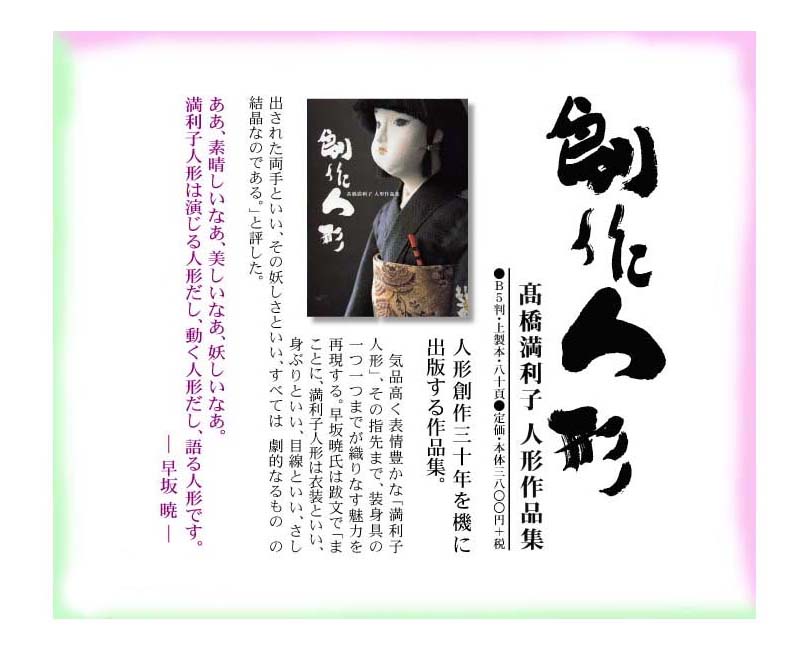 創作人形
髙橋満利子 人形作品集
●B5判・上製本・八十頁●定価・本体三八〇〇円+税
人形創作三十年を機に
出版する作品集。
創作人形
髙橋満利子 人形作品集
気品高く表情豊かな「満利子
人形」、その指先まで、装身具の
一つ一つまでが織りなす魅力を
再現する。早坂暁氏は跋文で「ま
ことに、満利子人形は衣装といい、
身ぶりといい、目線といい、さし
出された両手といい、その妖しさといい、すべては 劇的なるもの の
結晶なのである。」と評した。
ああ、素晴しいなあ、美しいなあ、妖しいなあ。
満利子人形は演じる人形だし、動く人形だし、語る人形です。
― 早坂 暁 ―